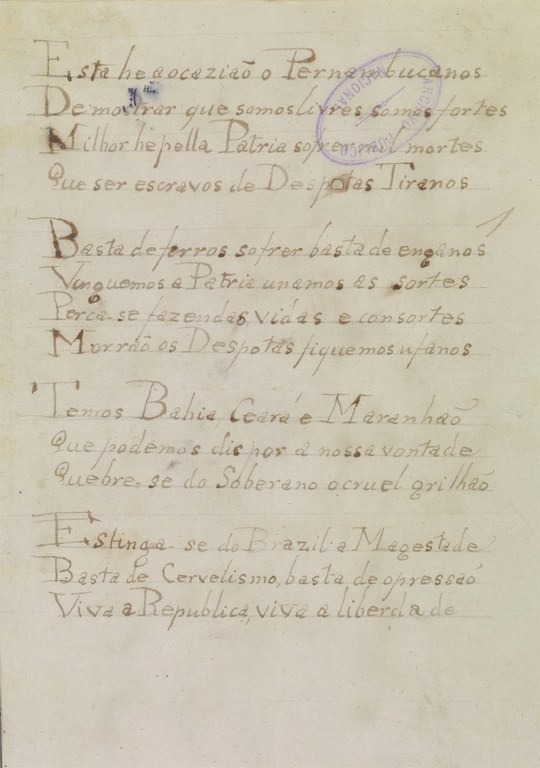 Esta he a ocaziaõ o Pernambucanos
Demostrar que somos livres somos fortes
Milhor he pella Patria sofrer mil mortes
Que ser escravos de Despotas Tiranos
Basta de ferros sofrer basta de enganos
Vinguemos a Patria unamos as sortes
Perca-se fazendas, vidas e consortes
Morraõ os Despotas fiquemos ufanos
Temos Bahia, Ceará e Maranhaõ
Que podemos dispor a nossa vontade
Quebre-se do Soberano o cruel grilhaõ
Estinga-se do Brazil a Magestade
Basta de Cervelismo, basta de opressaõ
Viva a Republica, viva a liberdade
ARCHIVO PUBLICO
NACIONAL